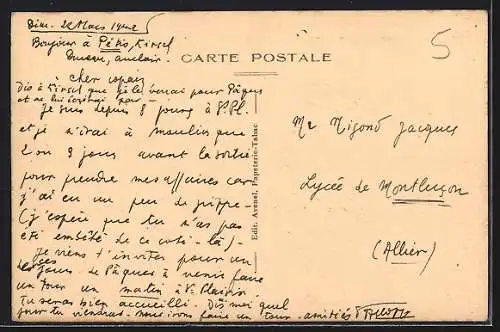 Dim. 22 Mars
Bonjour à Pétis, Kirsch
CARTE POSTALE
5
Cher copain
Dis à Kirsch que je le verrai pour Pâques
et ne lui écrirai pas —
Je suis depuis 8 jours à St Pl.
et je n'irai à moulins que
2 ou 3 jours avant la sortie
pour prendre mes affaires car
j'ai eu un peu de grippe —
(j'espère que tu n'as pas
été embêté de ce coté-là) —
Je viens t'inviter pour un
des jours de Pâques à venir faire
un tour un matin à St Plaisir
Tu seras bien accueilli. Dis moi quel
jour tu viendras — nous irons faire un tour — amitiés
Edit. Avenel, Papeterie-Tabac
Mr Migond Jacques
Lycée de Montluçon
(Allier)